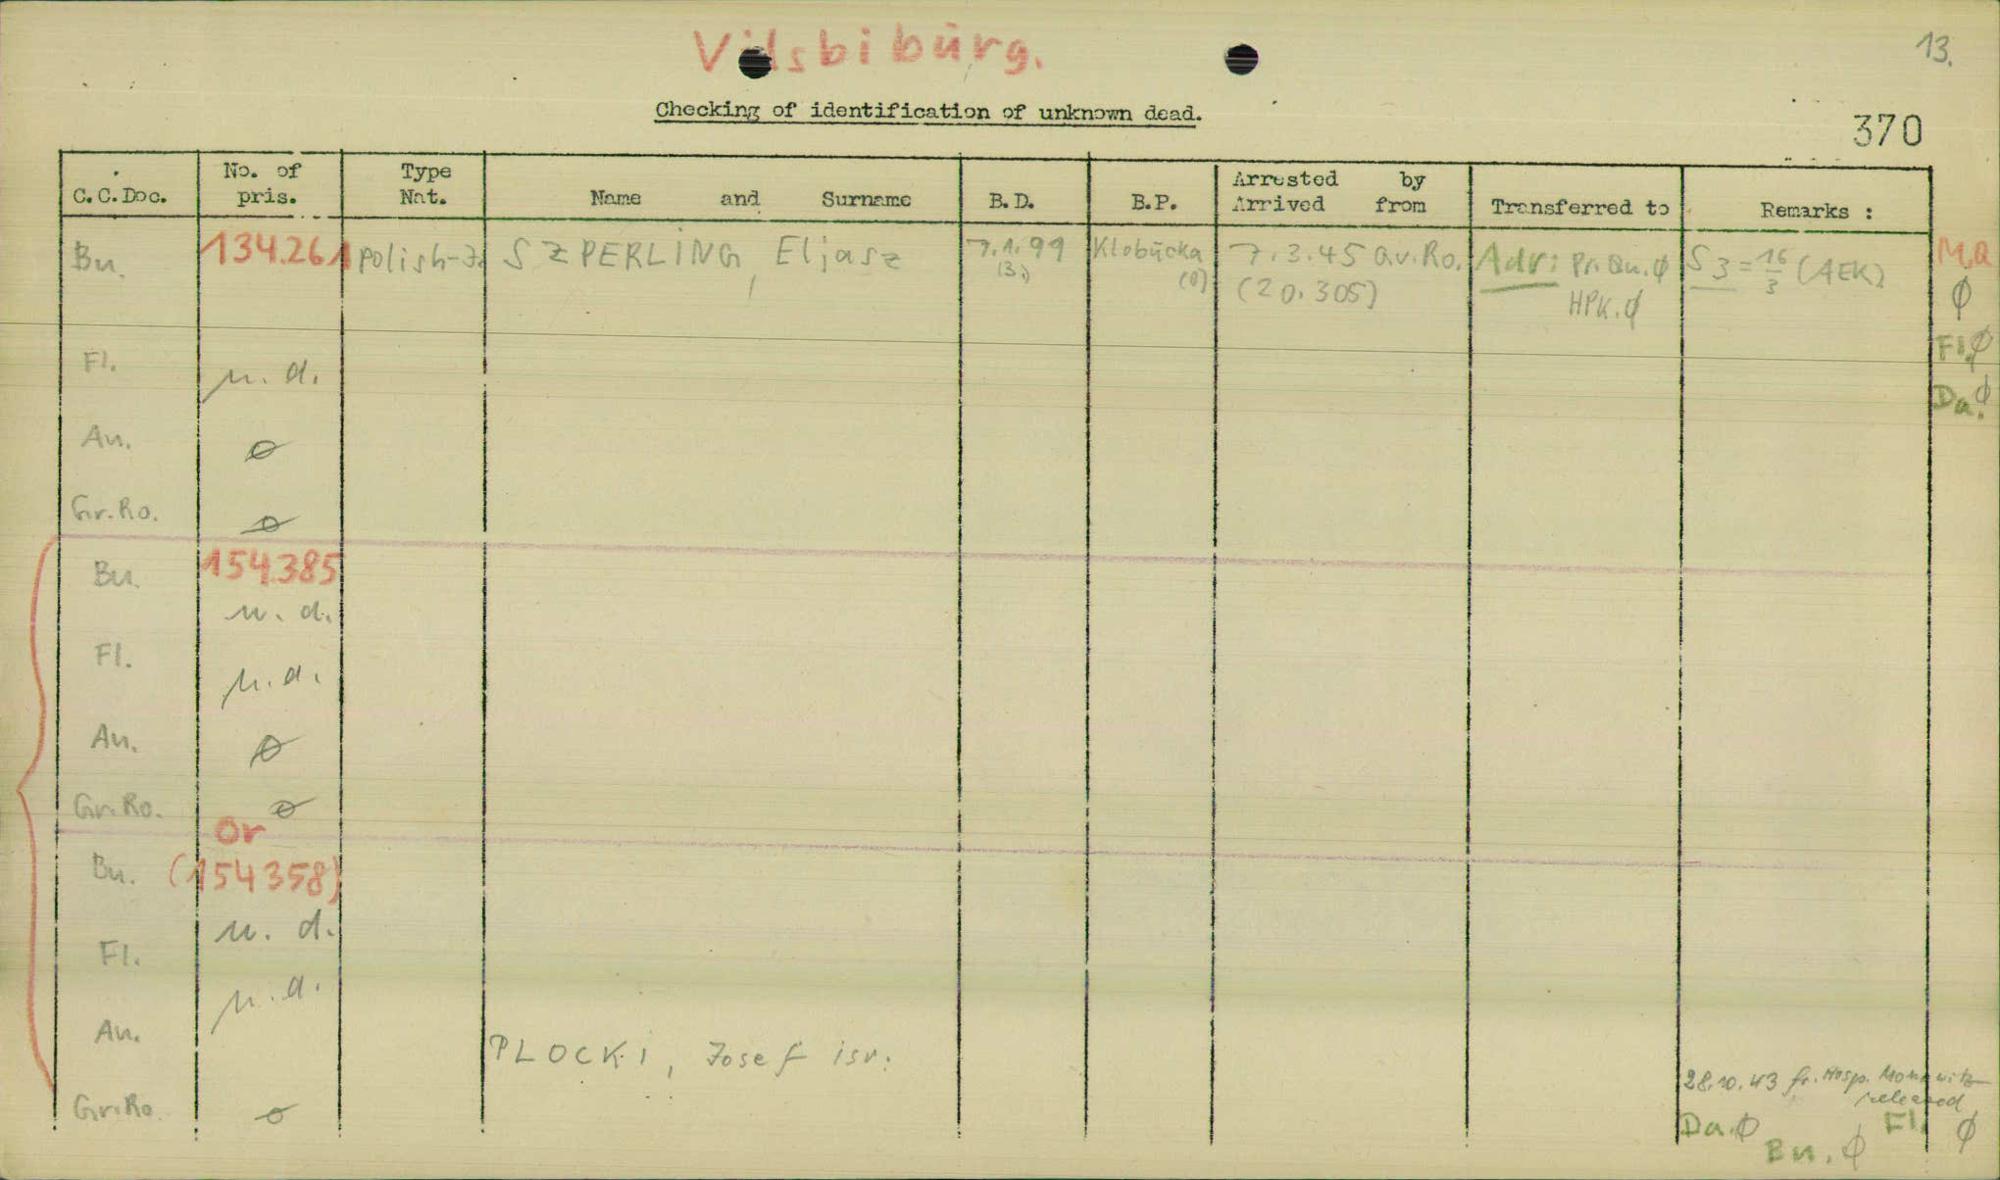 Vilsbibūrg.
13.
Checking of identification of unknown dead.
370
C.C.Doc. No. of pris. Type Nat. Name and Surname B.D. B.P. Arrested by Arrived from Transferred to Remarks :
Bu. 134.261 polish-J. SZPERLING, Eljasz 7.1.99 (3.) Klobūcka (0) 7.3.45 Gr.Ro. (20.305) Adr: Pr.Qu.Ø HPK.Ø S3 = 16/3 (AEK) M.a Ø
Fl. n. d. Fl.Ø
Da.Ø
An. Ø
Gr.Ro. Ø
Bu. 154.385
n. d.
Fl. n. d.
An. Ø
Gr.Ro. Ø
Or
Bu. (154358)
n. d.
Fl. n. d.
An. PLOCKI, Josef isr.
28.10.43 fr. Hosp. Monowitz
released
Gr.Ro. Ø Da.Ø Fl. Ø
Bu. Ø